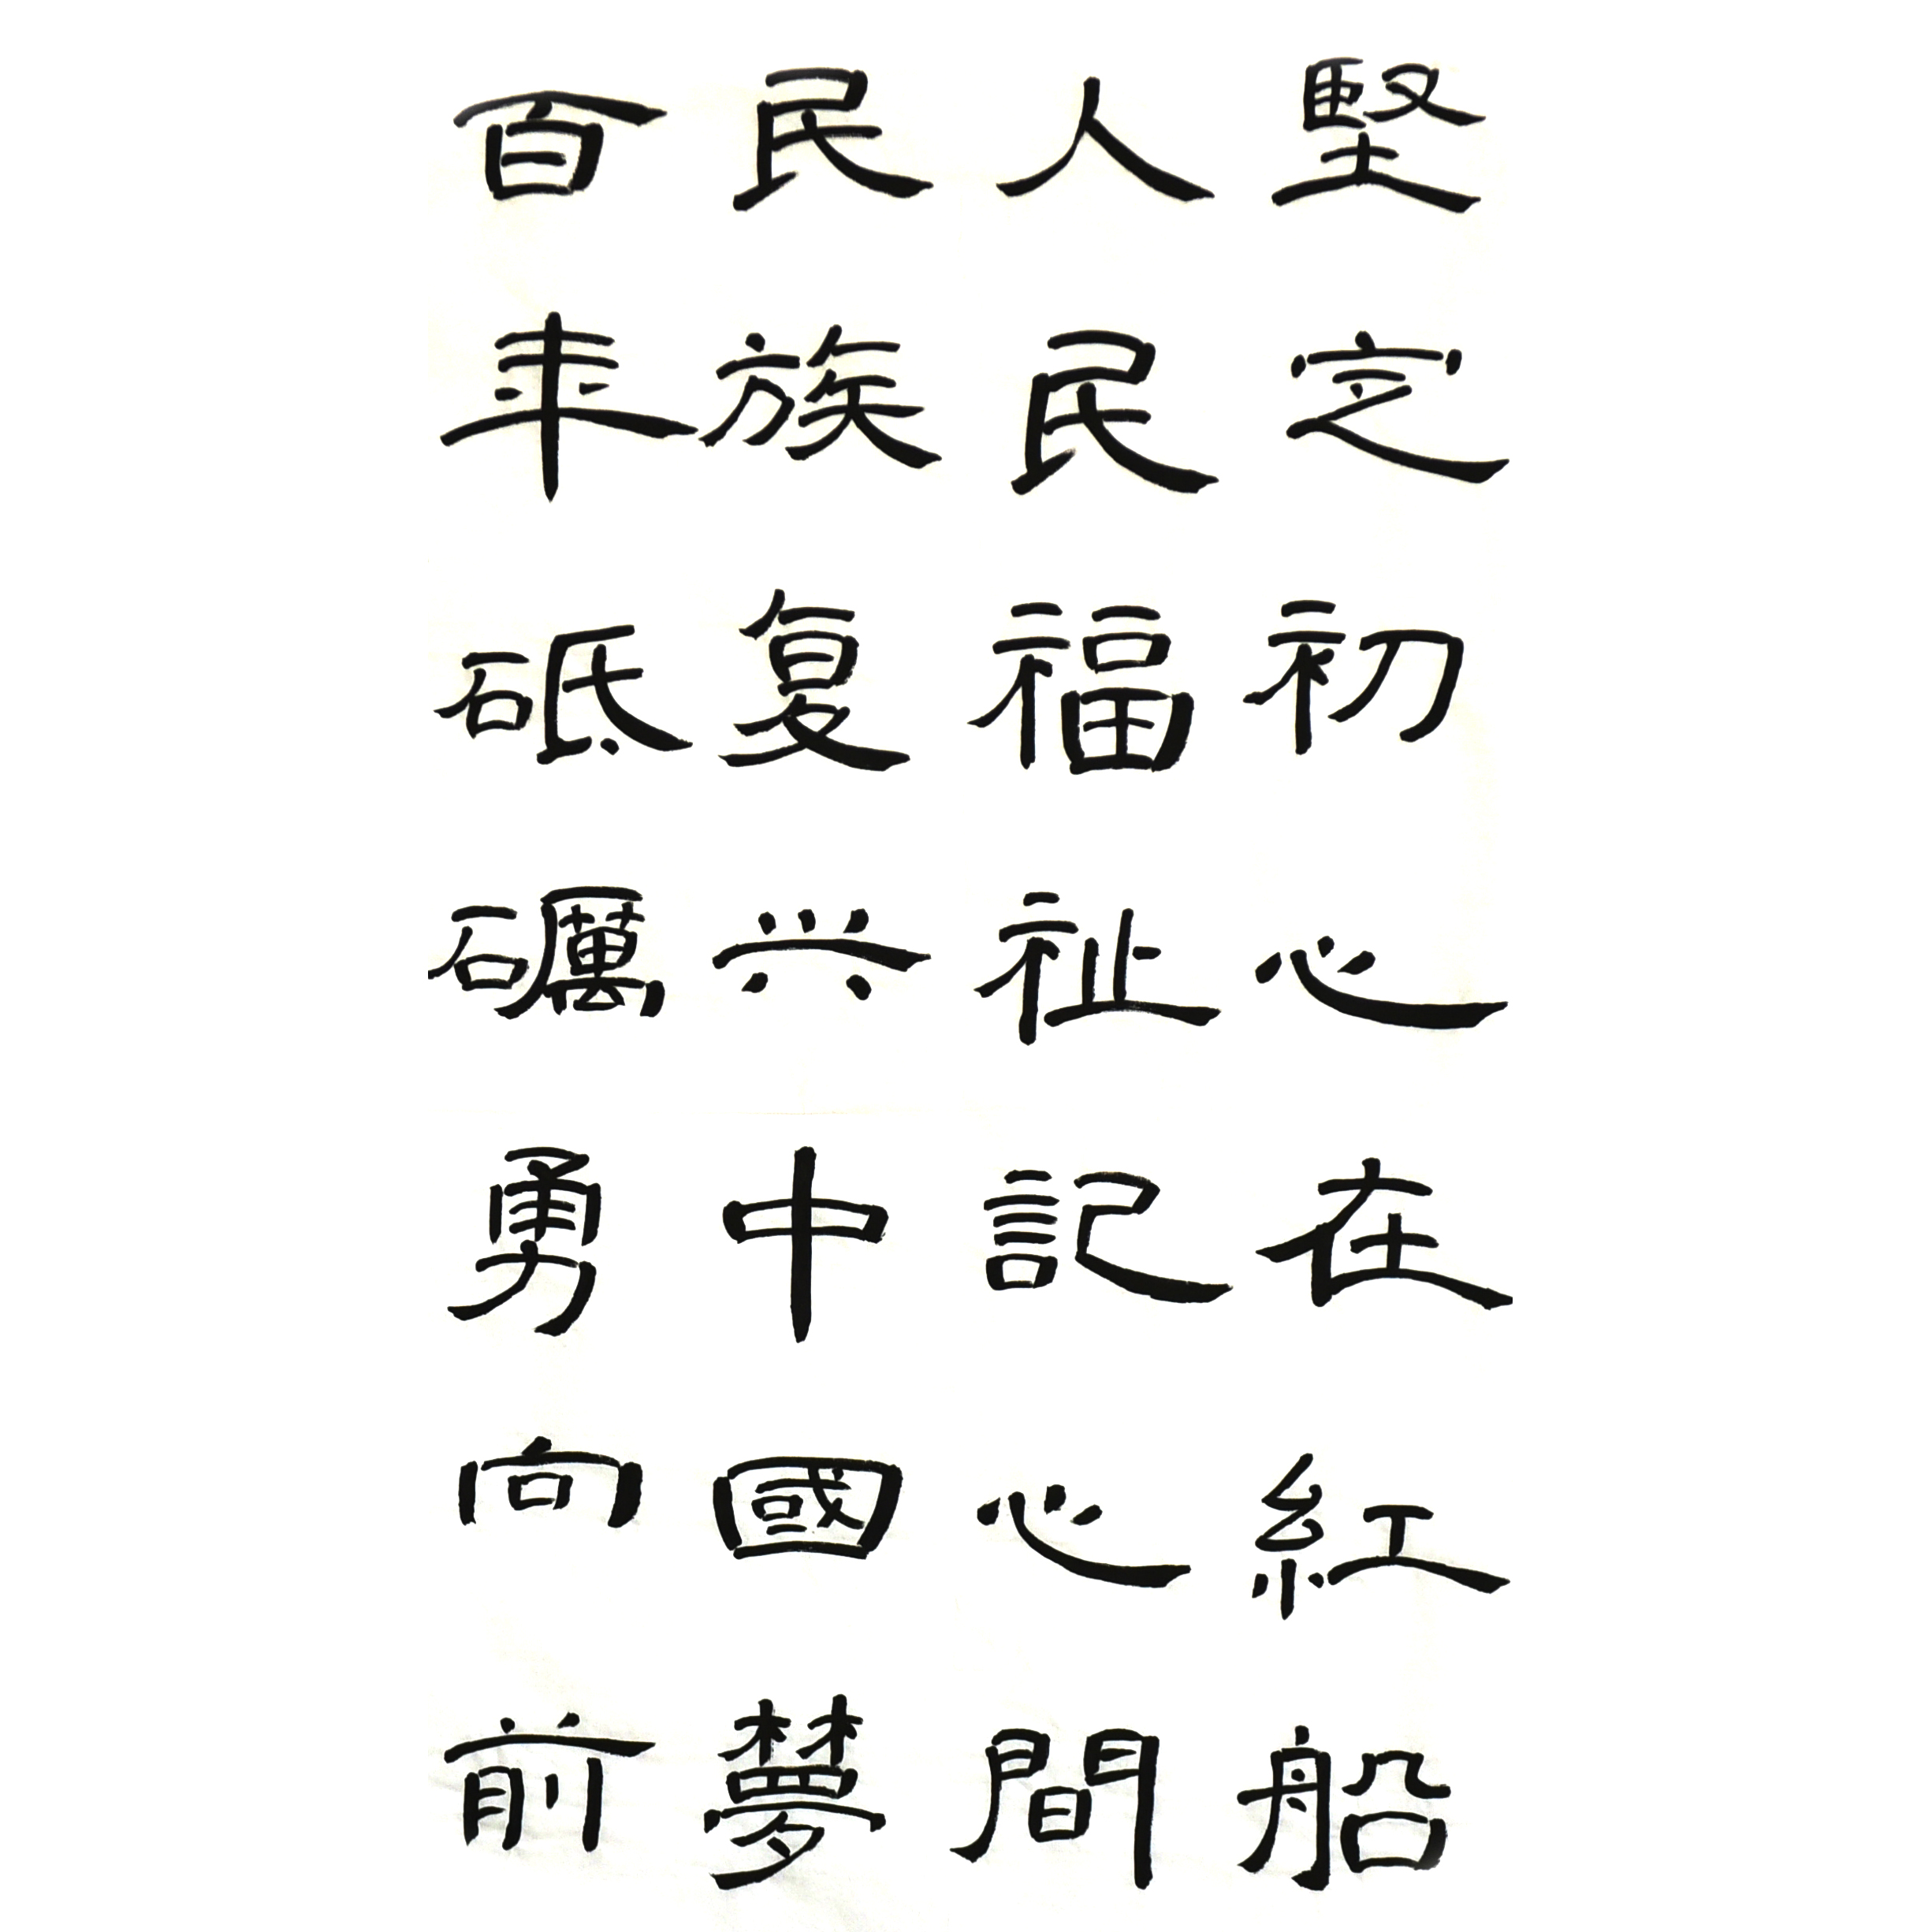 堅定初心在紅船
人民福祉記心間
民族复兴中國夢
百年砥礪勇向前